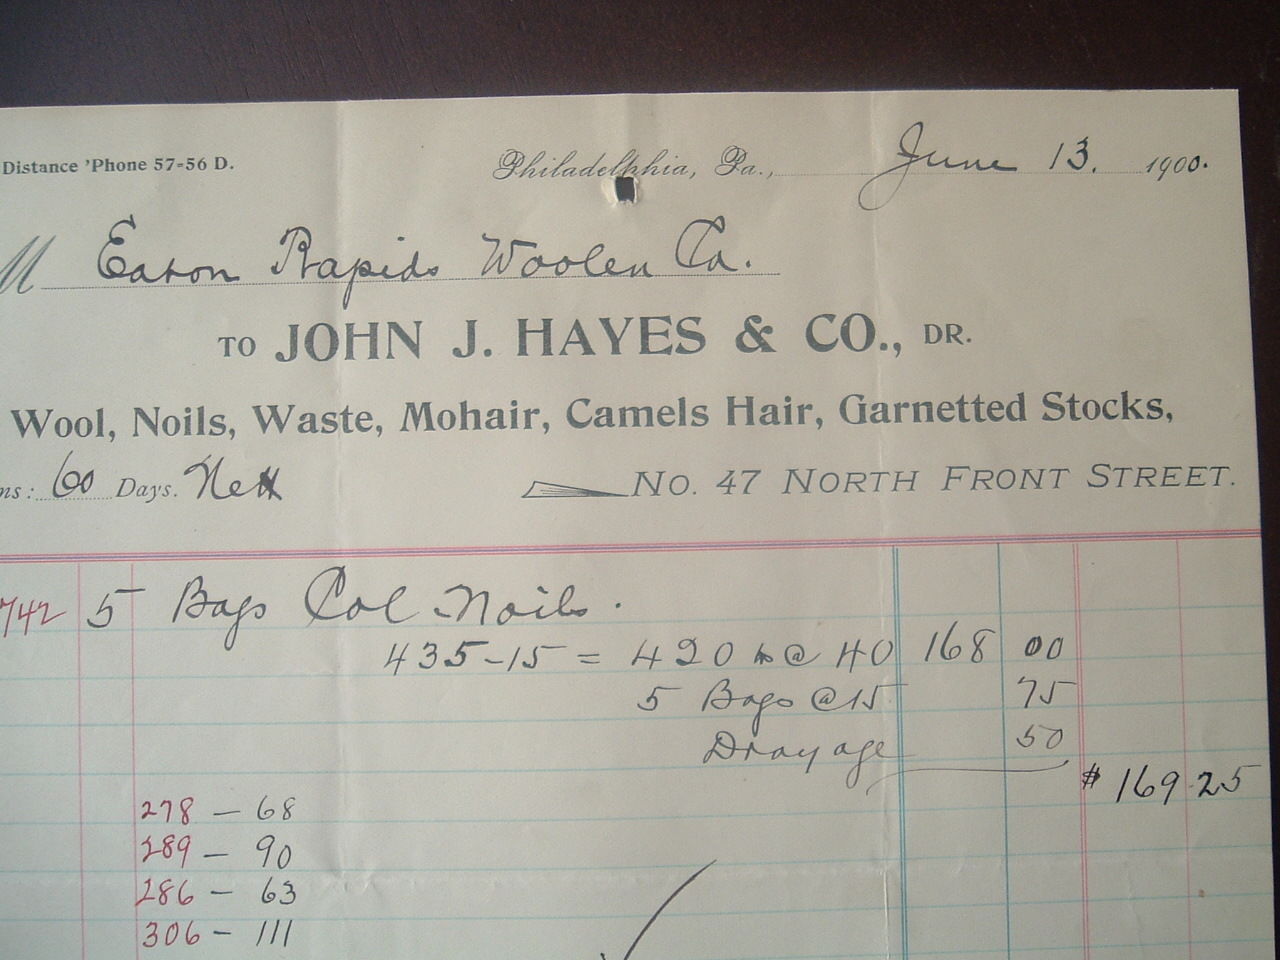 Distance 'Phone 57-56 D.
Philadelphia, Pa., June 13. 1900.
M Eaton Rapids Woolen Co.
TO JOHN J. HAYES & CO., DR.
Wool, Noils, Waste, Mohair, Camels Hair, Garnetted Stocks,
ms: 60 Days. Nett
No. 47 NORTH FRONT STREET.
742 5 Bags Col Noils.
435-15 = 420 lb @ 40 168 00
5 Bags @ 15 75
Drayage 50
$ 169 25
278 - 68
289 - 90
286 - 63
306 - 111